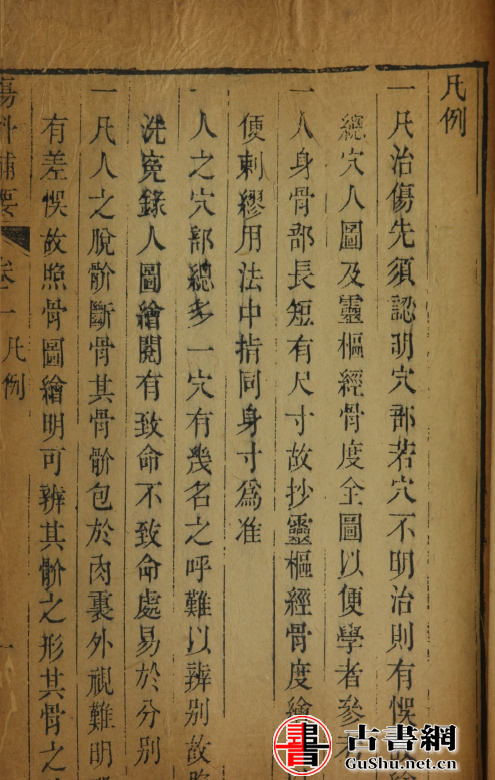 凡例
一凡治傷先須認明穴部若穴不明治則有悞
總穴人圖及靈樞經骨度全圖以便學者參考
一人身骨部長短有尺寸故抄靈樞經骨度繪
便刺繆用法中指同身寸爲准
一人之穴部總多一穴有幾名之呼難以辨别故
洗寃錄人圖繪閱有致命不致命處易於分别
一凡人之脫骱斷骨其骨骱包於肉裏外視難明
有差悞故照骨圖繪明可辨其骱之形其骨之
傷科補要 卷一 凡例 一
古書網
GuShu.net.cn